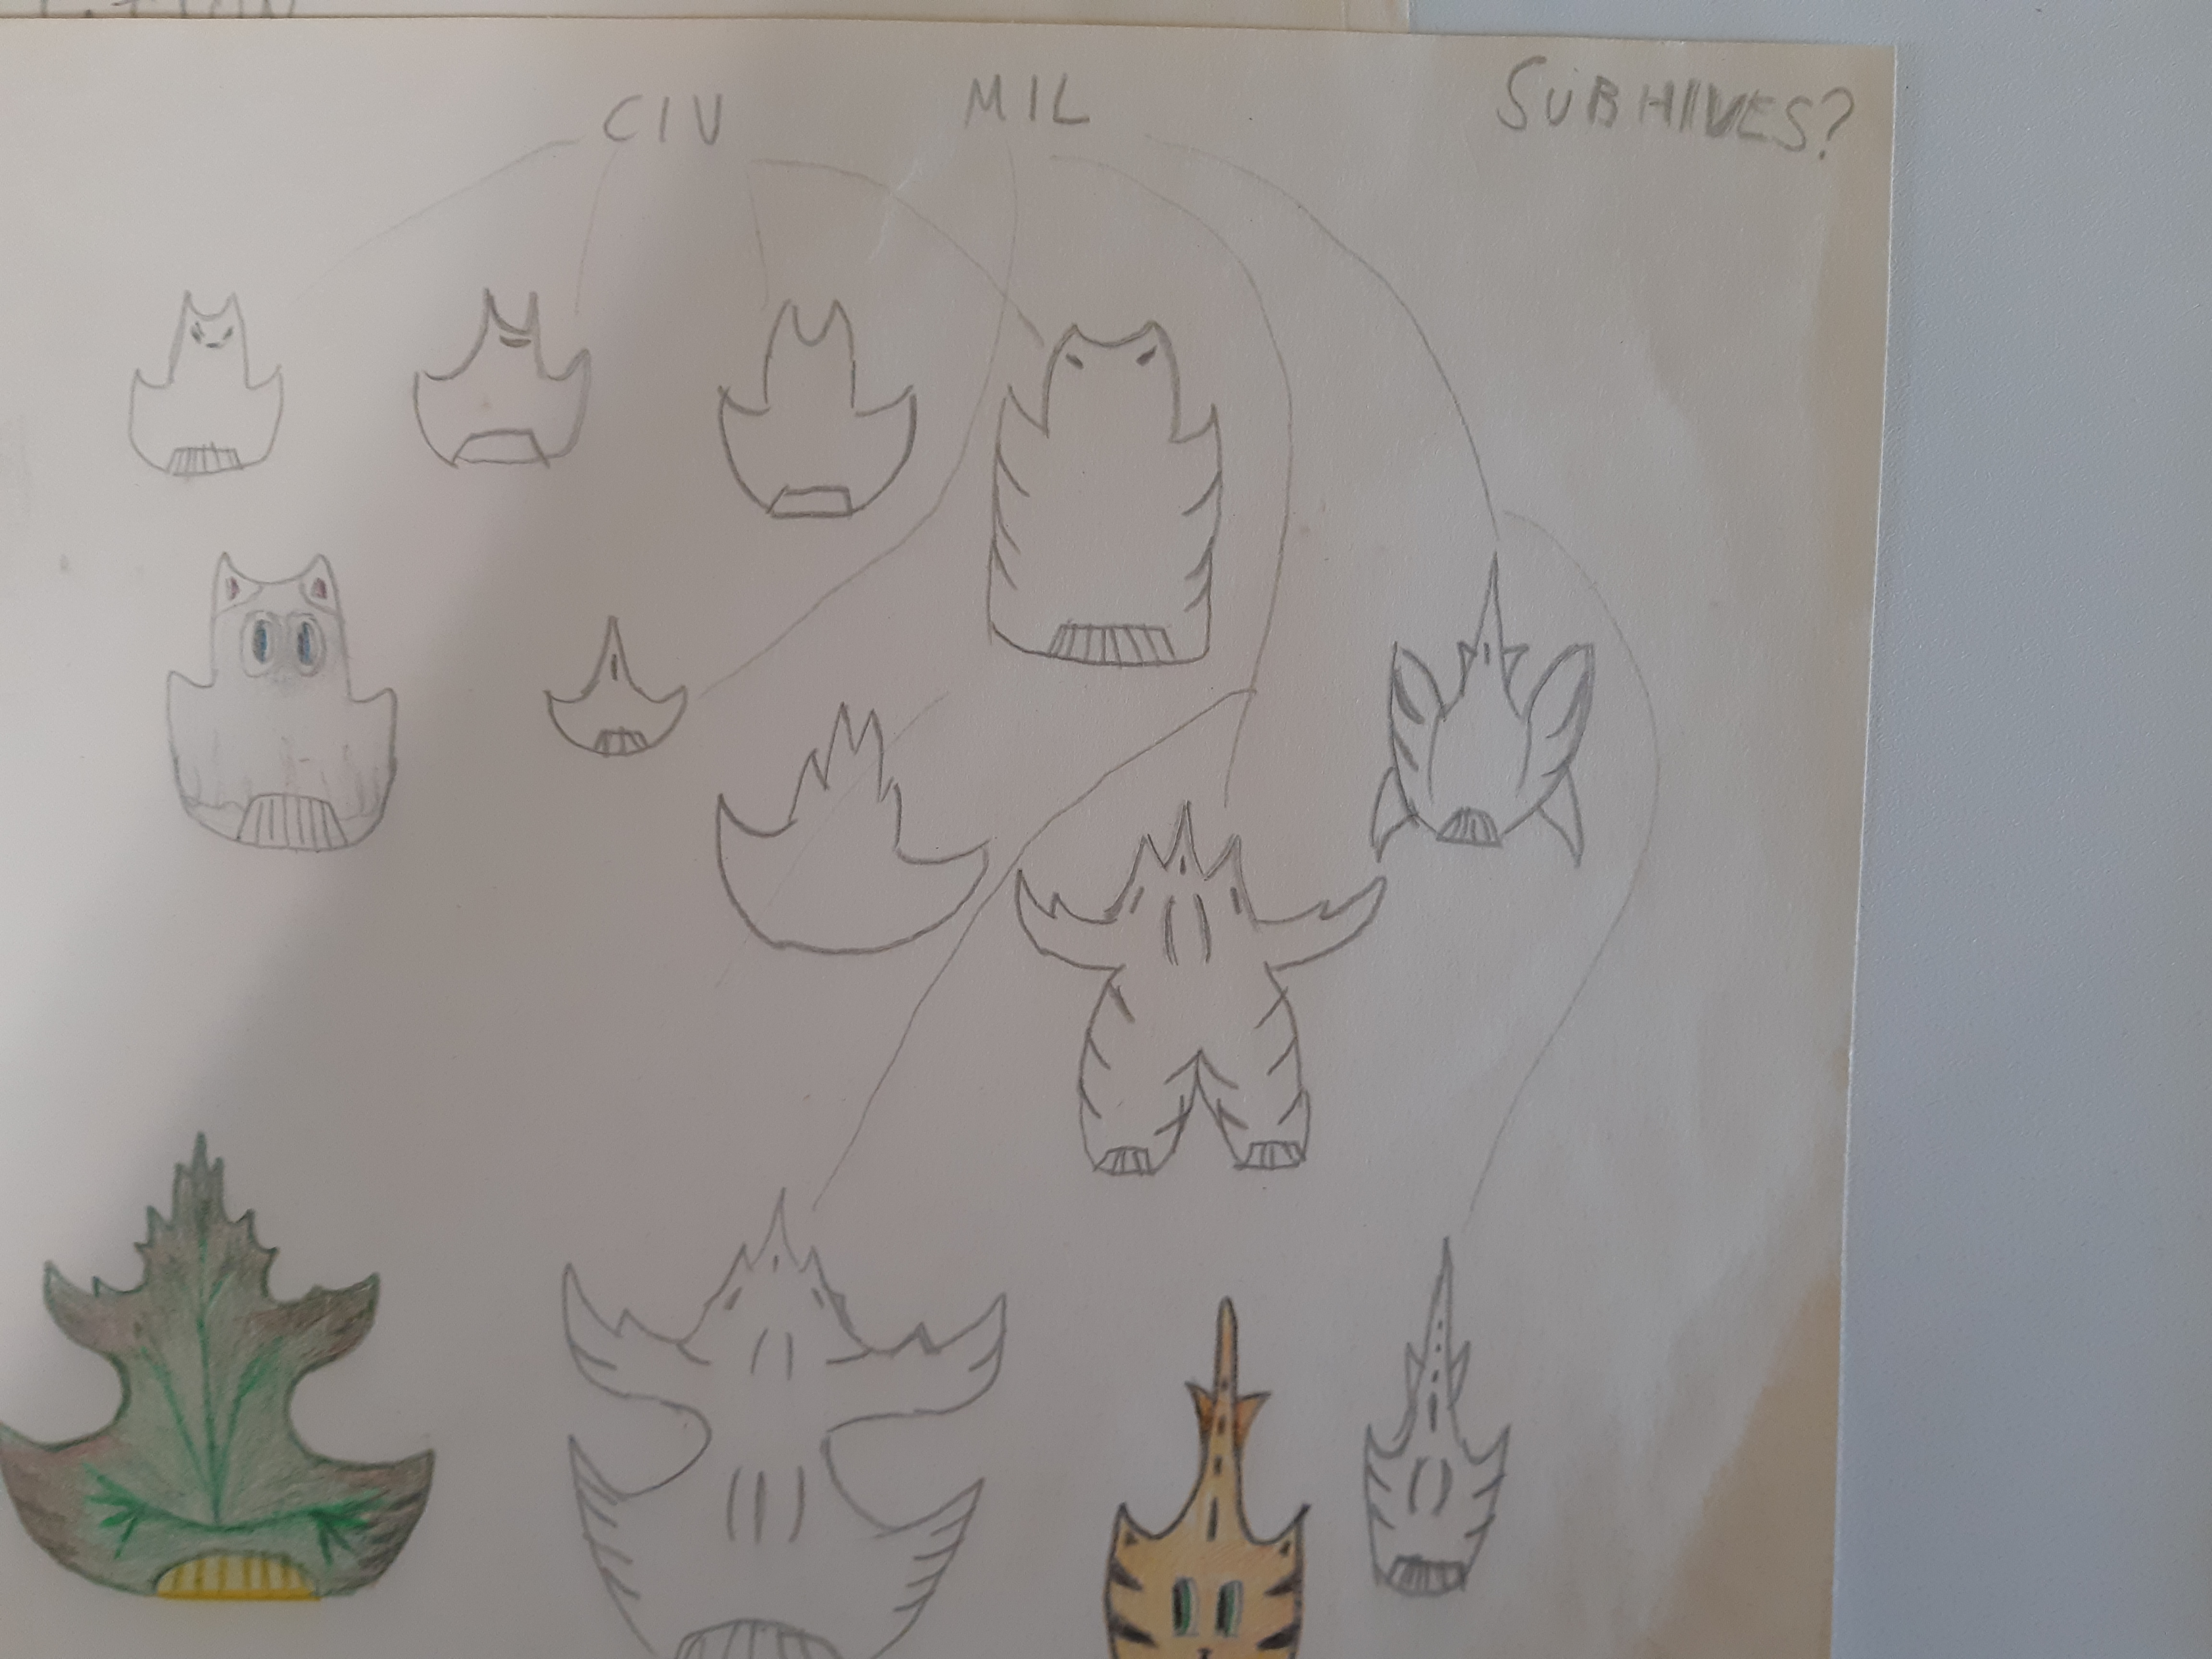 CIV MIL SUBHIVES?